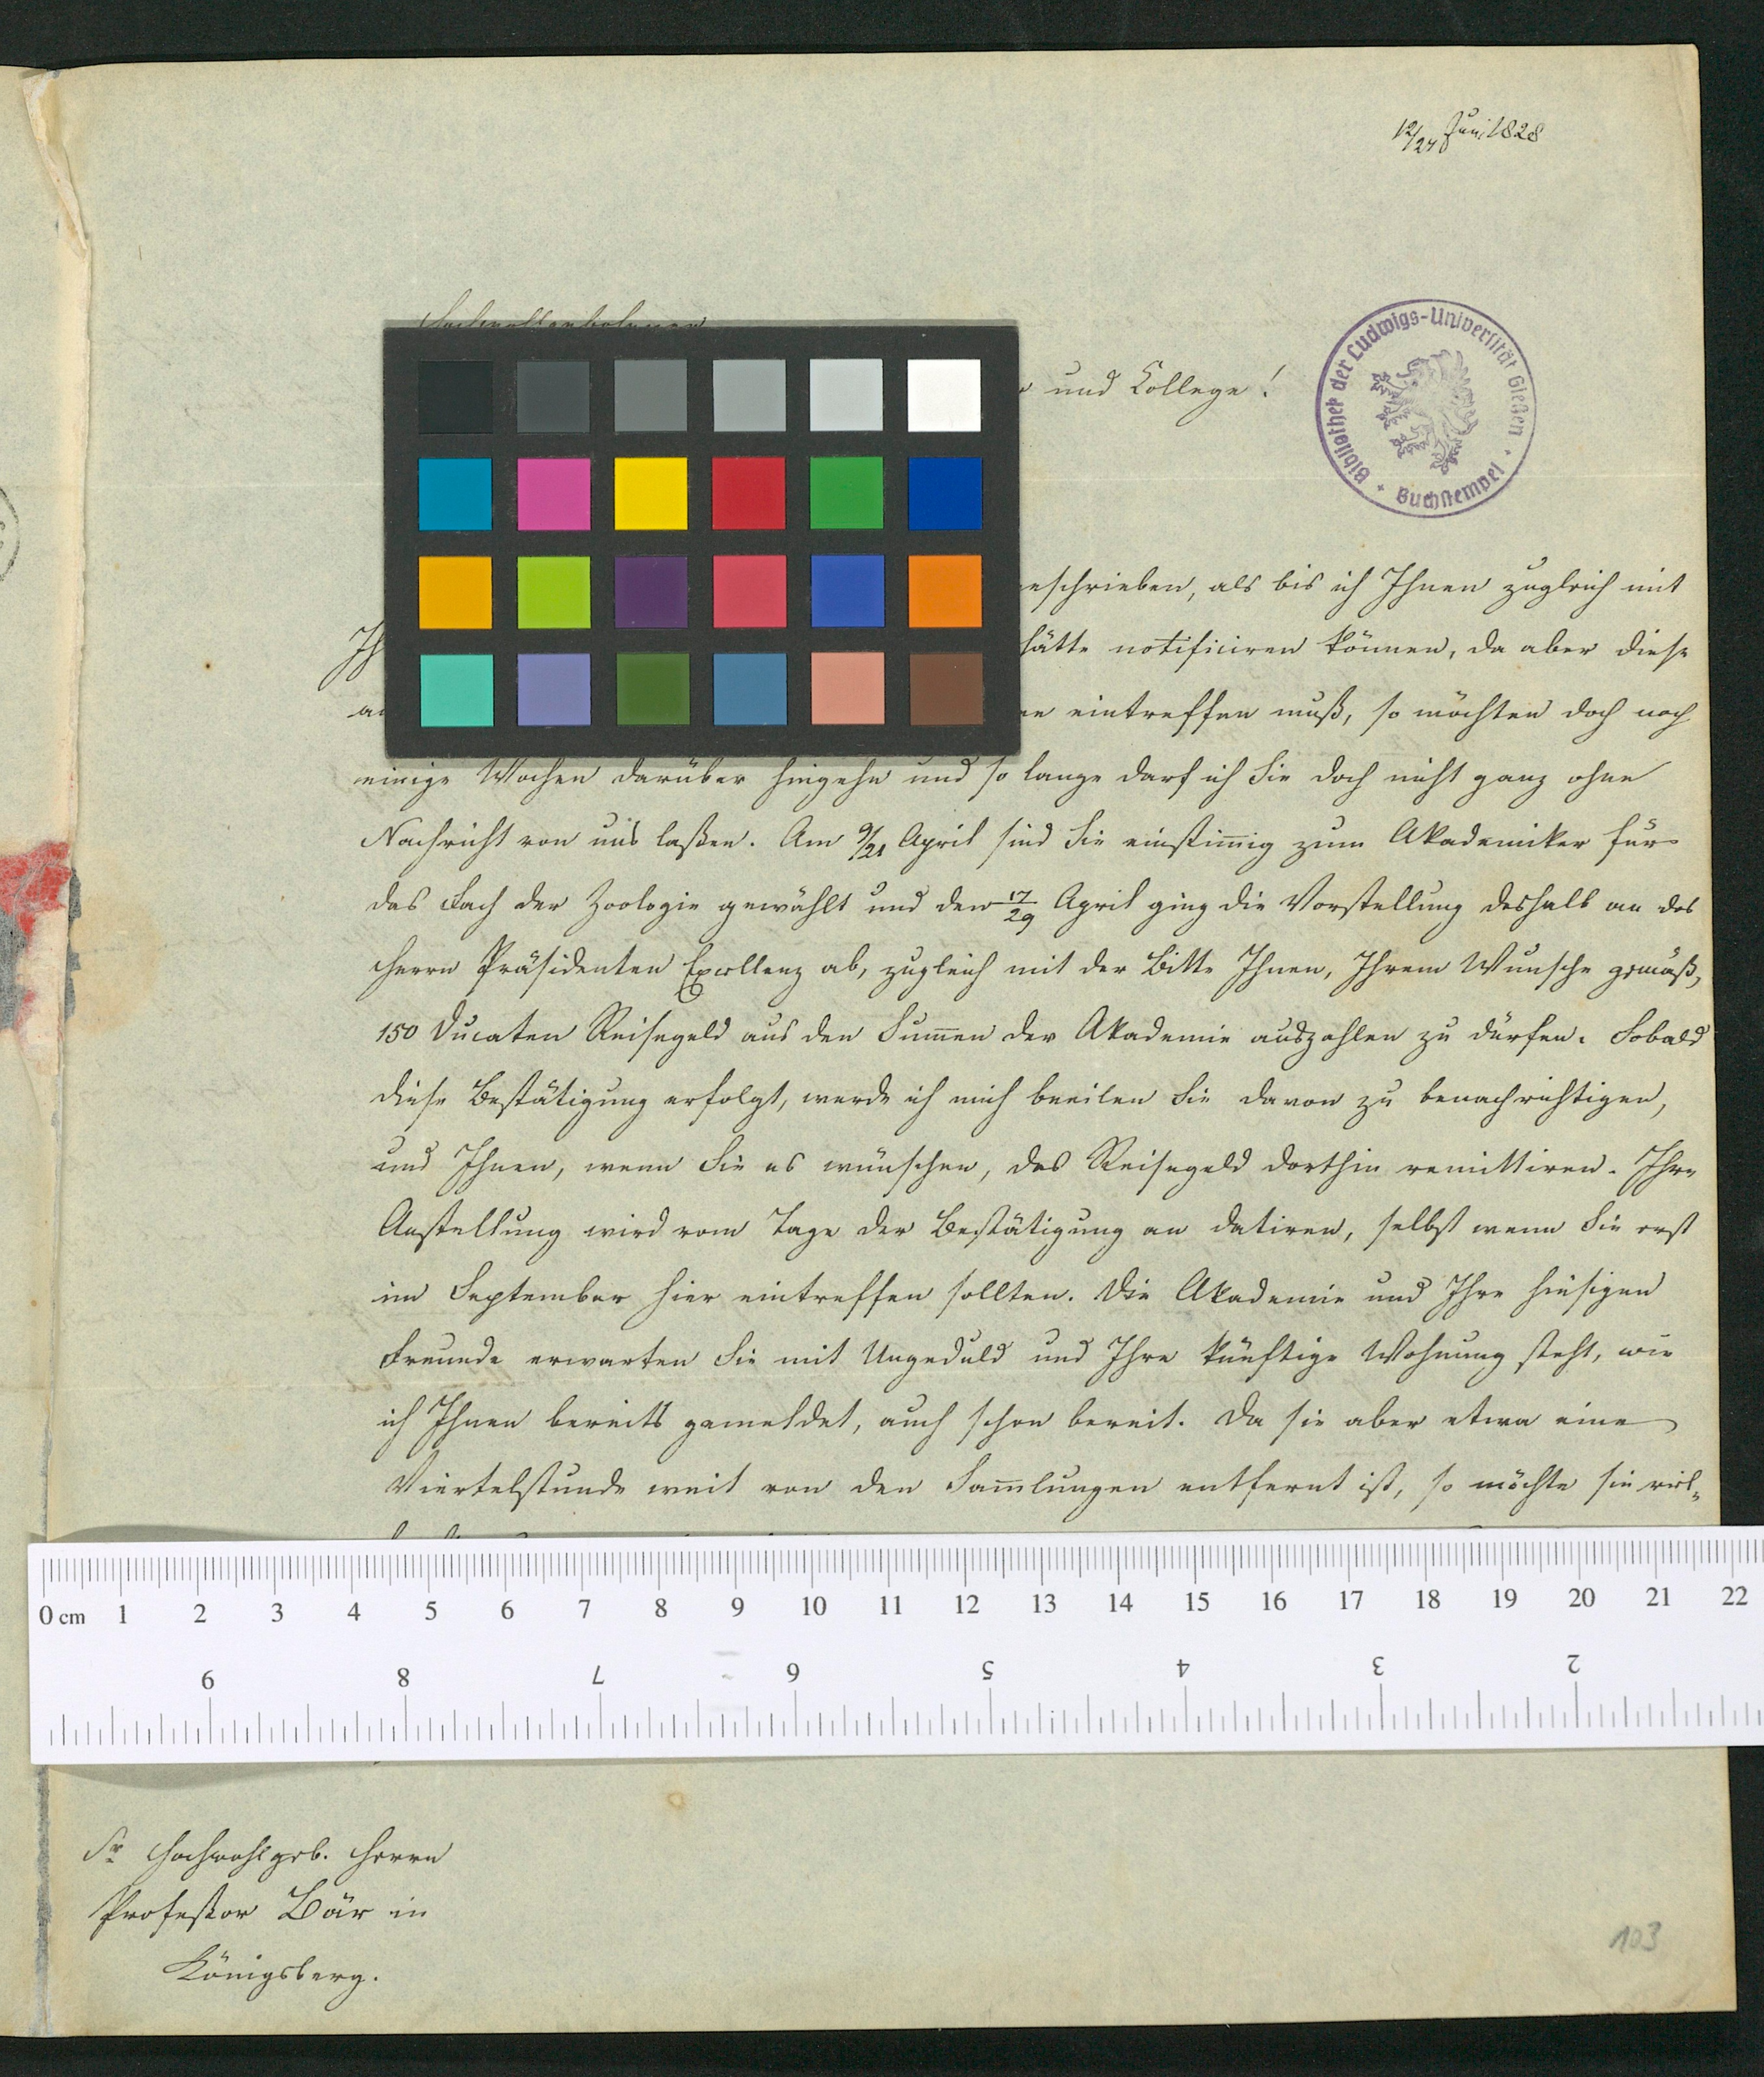 12/24 Juni 1828
Hochwohlgeborner
und College!
Bibliothek der Ludwigs-Universität Gießen · Buchstempel
geschrieben, als bis ich Ihnen zugleich mit
Ih
hätte notificiren können, da aber diese
a
eintreffen muß, so möchten doch noch
einige Wochen darüber hingehn und so lange darf ich Sie doch nicht ganz ohne
Nachricht von uns laßen. Am 9/21 April sind Sie einstim̄ig zum Akademiker für
das Fach der Zoologie gewählt und den 17/29 April ging die Vorstellung deshalb an des
Herrn Präsidenten Excellenz ab, zugleich mit der Bitte Ihnen, Ihrem Wunsche gemäß,
150 Ducaten Reisegeld aus den Sum̄en der Akademie auszahlen zu dürfen. Sobald
diese Bestätigung erfolgt, werde ich mich beeilen Sie davon zu benachrichtigen,
und Ihnen, wenn Sie es wünschen, das Reisegeld dorthin remittiren. Ihre
Anstellung wird vom Tage der Bestätigung an datiren, selbst wenn Sie erst
im September hier eintreffen sollten. Die Akademie und Ihre hiesigen
Freunde erwarten Sie mit Ungeduld und Ihre künftige Wohnung steht, wie
ich Ihnen bereits gemeldet, auch schon bereit. Da sie aber etwa eine
Viertelstunde weit von den Sam̄lungen entfernt ist, so möchte sie viel-
0 cm 1 2 3 4 5 6 7 8 9 10 11 12 13 14 15 16 17 18 19 20 21 22
9 8 7 6 5 4 3 2
Sr Hochwohlgeb. Herrn
Profeßor Bär in
Königsberg.
103